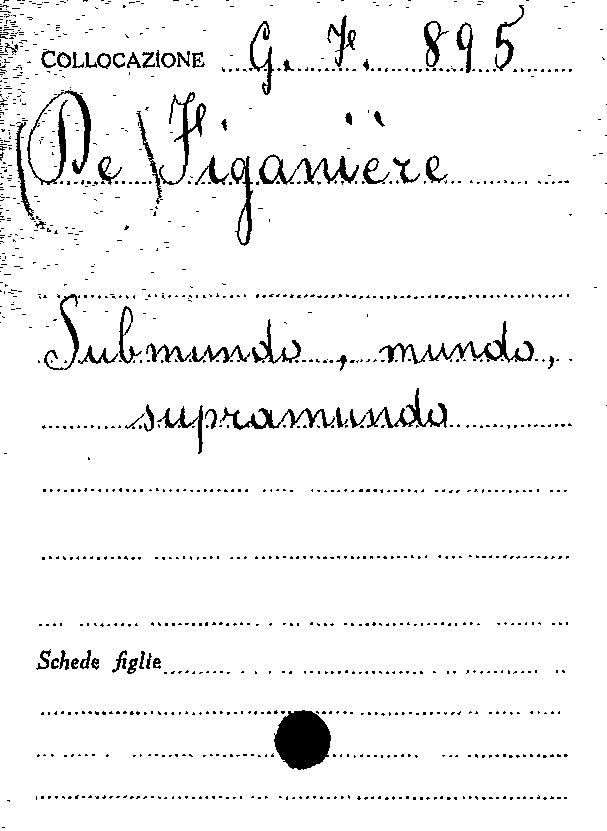 COLLOCAZIONE G. F. 895
(De) Figanière
Submundo, mundo,
supramundo
Schede figlie